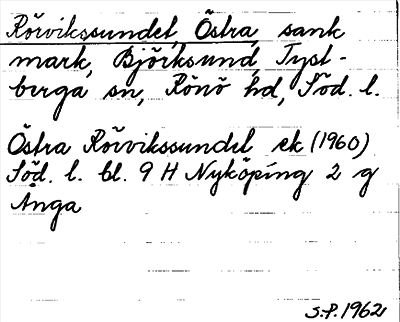 Rörvikssundet, Östra, sank
mark, Björksund, Tyst-
berga sn, Rönö hd, Söd. l.
Östra Rörvikssundet ek (1960)
Söd. l. bl. 9 H Nyköping 2 g
Ånga
S.P. 1962